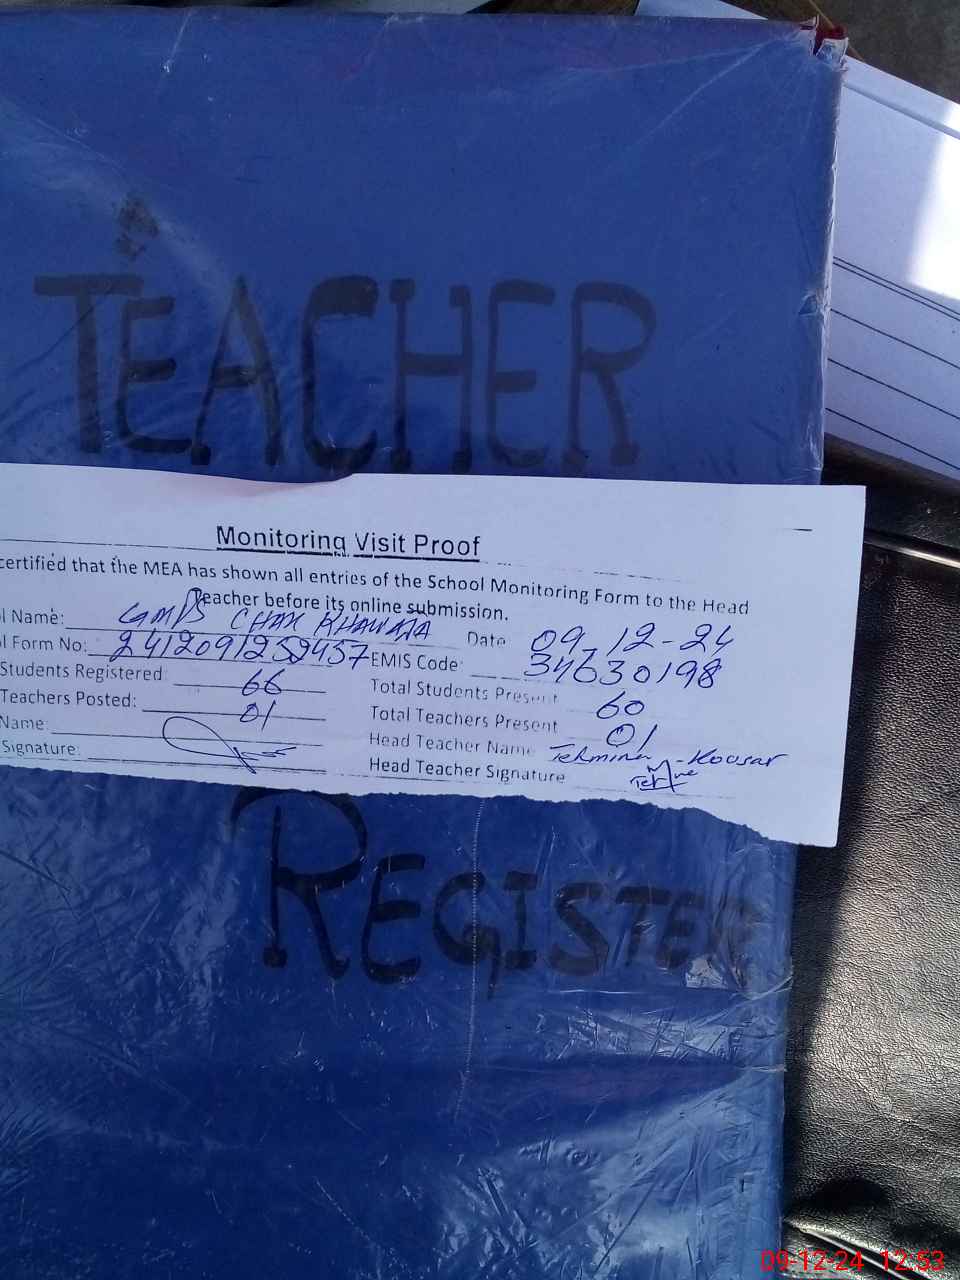 TEACHER
Monitoring Visit Proof
certified that the MEA has shown all entries of the School Monitoring Form to the Head
Teacher before its online submission.
l Name: GMPS CHAK KHAWAJA Date 09-12-24
l Form No: 2412091252457 EMIS Code: 34630198
Students Registered: 66 Total Students Present 60
Teachers Posted: 01 Total Teachers Present 01
Name: Head Teacher Name Tehmina Koousar
Signature: Head Teacher Signature
REGISTER
09-12-24 12:53